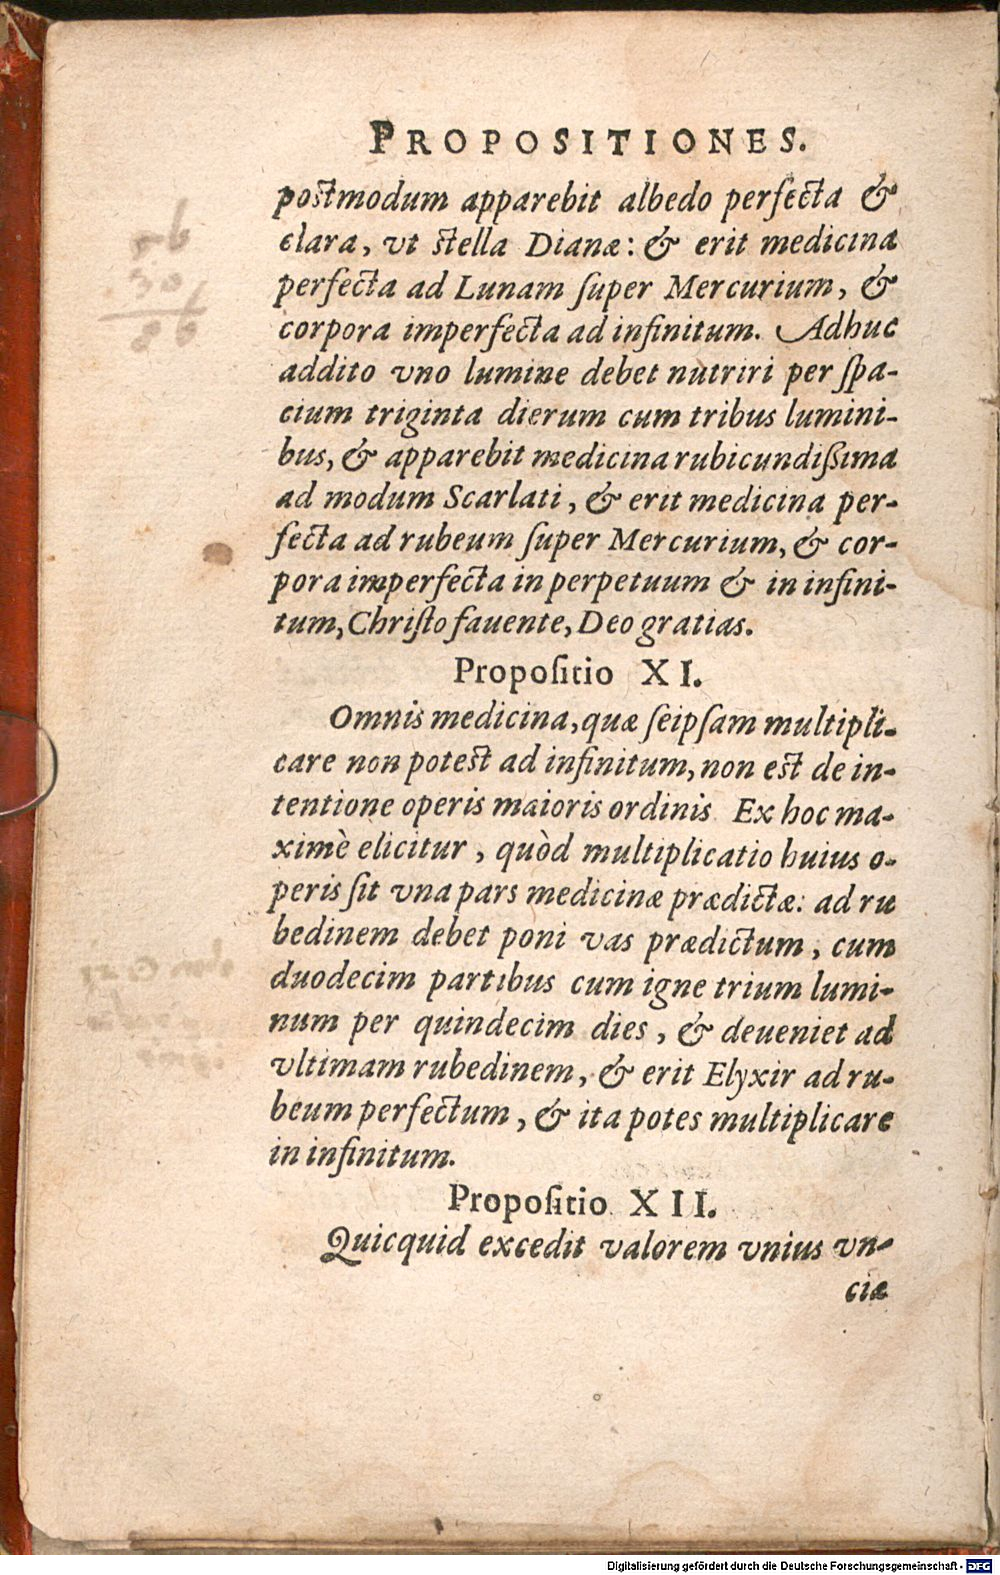 PROPOSITIONES.
postmodum apparebit albedo perfecta &
clara, vt stella Dianæ: & erit medicina
perfecta ad Lunam ſuper Mercurium, &
corpora imperfecta ad infinitum. Adhuc
addito vno lumine debet nutriri per ſpa-
cium triginta dierum cum tribus lumini-
bus, & apparebit medicina rubicundiſsima
ad modum Scarlati, & erit medicina per-
fecta ad rubeum ſuper Mercurium, & cor-
pora imperfecta in perpetuum & in infini-
tum, Chriſto fauente, Deo gratias.
Propoſitio XI.
Omnis medicina, quæ ſeipſam multipli-
care non potest ad infinitum, non est de in-
tentione operis maioris ordinis Ex hoc ma-
ximè elicitur, quòd multiplicatio huius o-
peris ſit vna pars medicinæ prædictæ: ad ru
bedinem debet poni vas prædictum, cum
duodecim partibus cum igne trium lumi-
num per quindecim dies, & deueniet ad
vltimam rubedinem, & erit Elyxir ad ru-
beum perfectum, & ita potes multiplicare
in infinitum.
Propoſitio XII.
Quicquid excedit valorem vnius vn-
ciæ
Digitalisierung gefördert durch die Deutsche Forschungsgemeinschaft - DFG